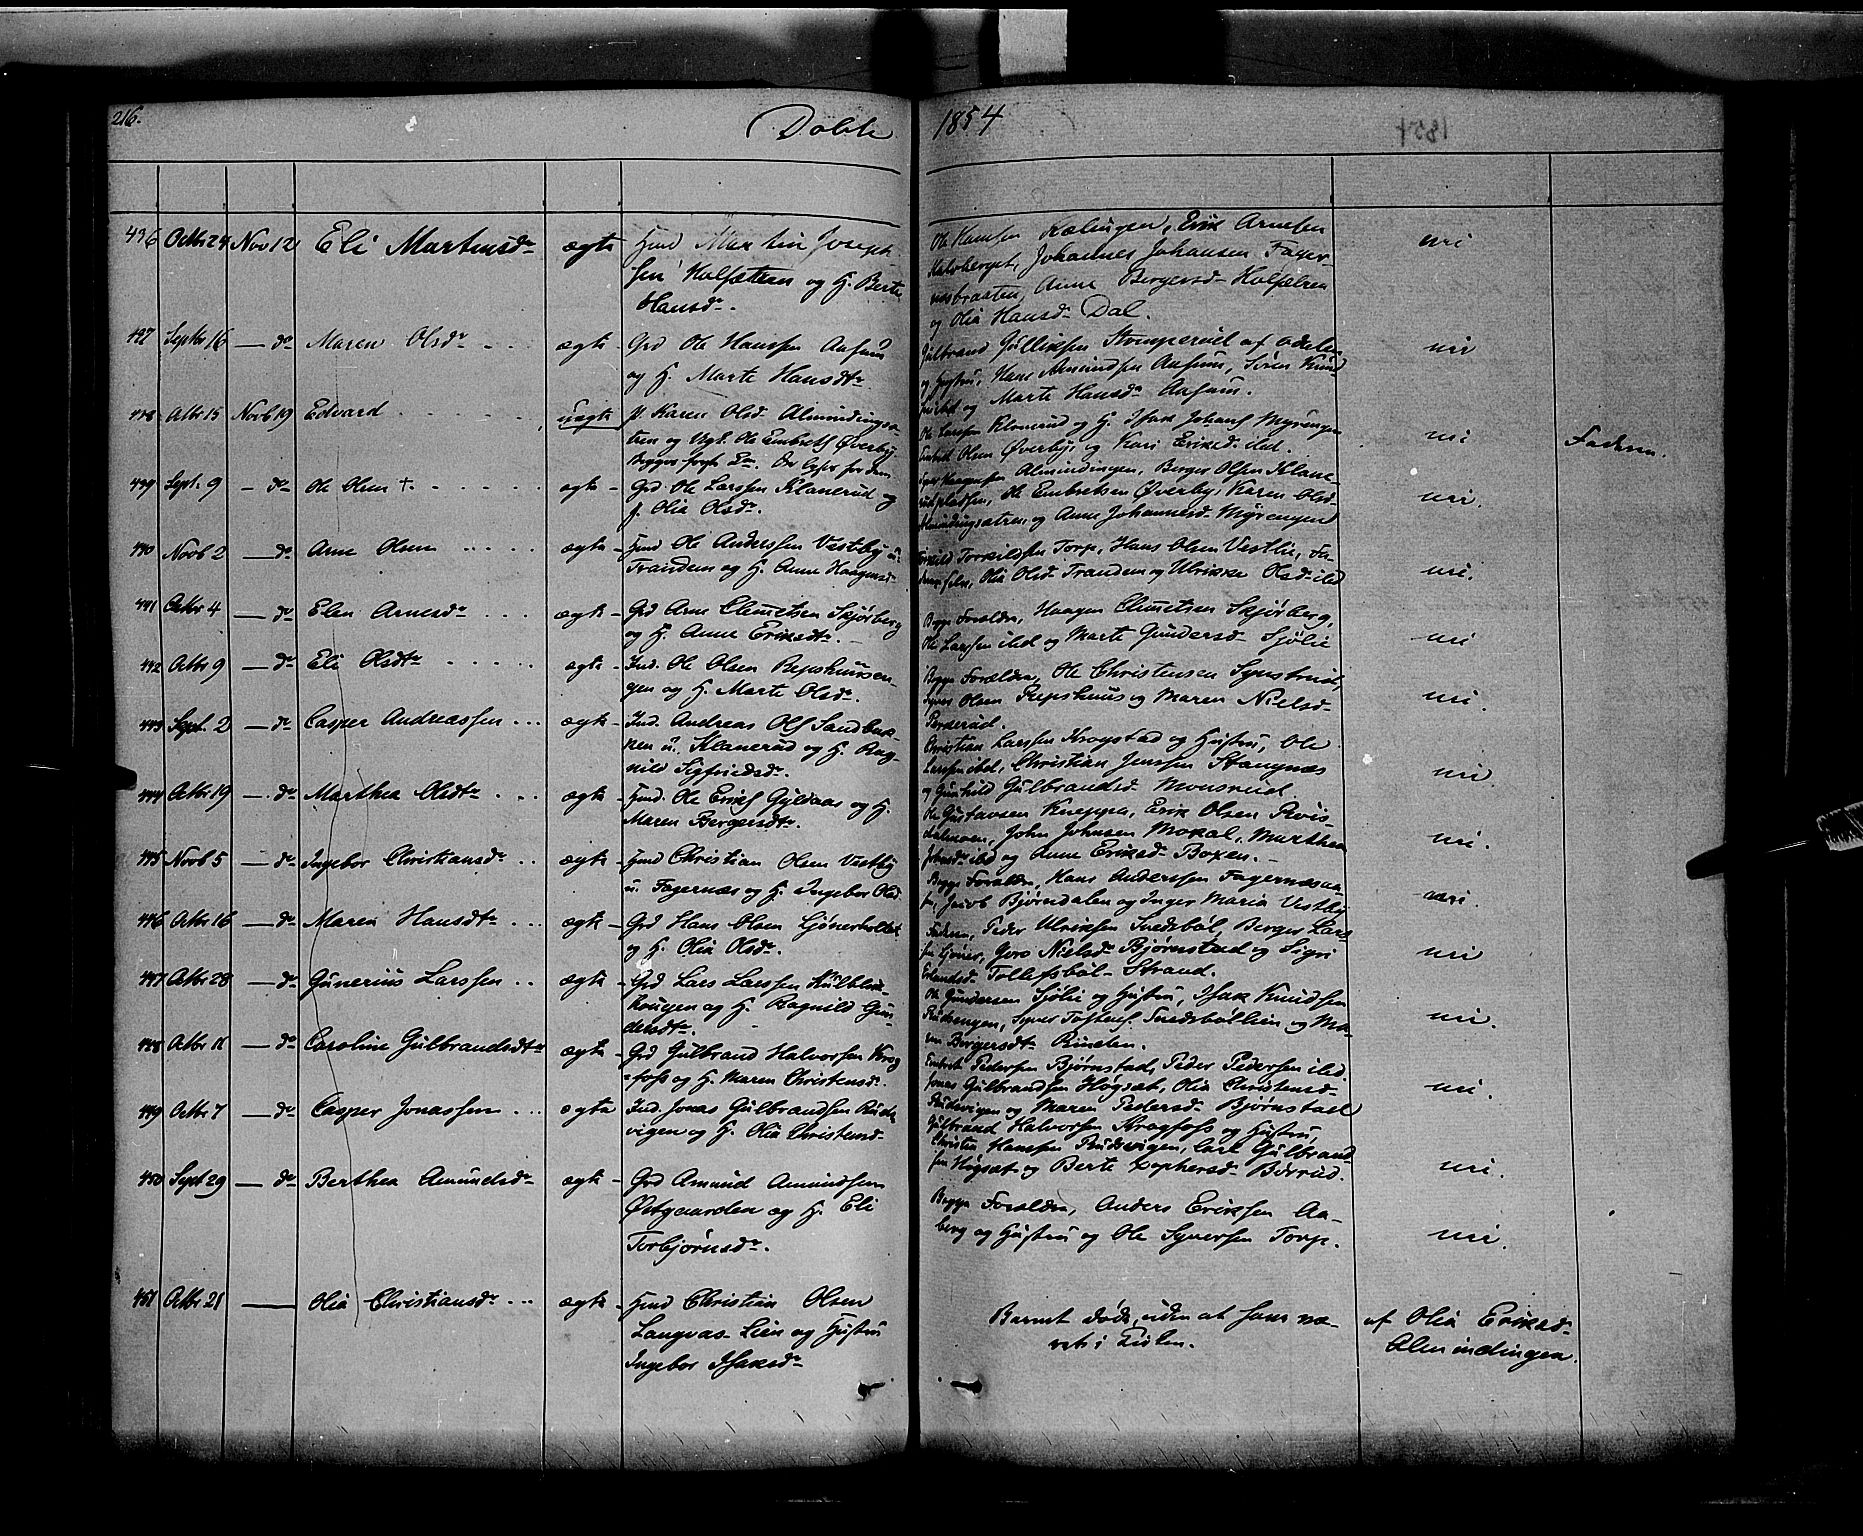 216.
Døbte
1854
436 Octbr 24 Nov 12 Eli Martinsdr ægte Hmd Martin Joseph-
sen Kalsætren og H. Berte
Hansdr.
Ole Hansen Kolingen, Erik Arnesen
Kalvberget, Johannes Johansen Fager-
næsbraaten, Anne Bergersd-
og Olia Hansdr Dal.
uri
437 Septbr 16 — do Maren Olsdr ægte Grd Ole Hanssen Aasum
og H. Marte Hansdtr
Gulbrand Gulliksen af
og Hustru, Hans Amundsen Aasum, Søren
og Marte Hansdr Aasum.
uri
438 Octbr 15 Novb 19 Edvard uægte p. Karen Olsd Almindings-
tren og Ungk. Ole Embretss Øverby.
Begges Do
Ole Larssen Klanerud og H. Isak Johans Myrengen
Embret Olsen Øverby og Kari Eriksd. ibd.
uri
Faderen.
439 Septr 9 — do Ole Olsen † ægte Grd. Ole Larssen Klanerud og
H. Olia Olsdr.
Almindingen, Berger Olsen Klane-
rudpladsen, Ole Embretsen Øverby, Karen Olsd
Almindingsætren og Anne Johannesd- Myrengen
uri.
440 Novb 2 — do Arne Olsen ægte Hmd Ole Anderssen Vestby u.
Trandem og H. Anne Haagensd-
Torkild Torkildsen Torp, Hans Olsen Vestlie, Fa-
deren selv, Olia Olsd- Trandem og Ulrikke Olsd- ibd
uri.
441 Octbr 4 — do Elen Arnesdr ægte Grd Arne Clemetsen Skjørberg
og H. Anne Eriksdtr.
Begge Forældre, Haagen Clemetsen Skjørberg,
Ole Larssen ibd og Marte Gundersd- Sjølie
uri
442 Octbr 9 — do Eli Olsdtr ægte Ind. Ole Olsen Repshuusen-
gen og H. Marte Olsdr.
Begge Forældre, Ole Christensen Synstrud,
Syver Olsen Repshuus og Maren Nielsd-
Perserud.
uri.
443 Septr. 2 — do Casper Andreassen ægte Ind. Andreas Ols Sandbak-
ken u. Klanerud og H. Rag-
nild Sigfriedsdr.
Christian Larssen Krogstad og Hustru, Ole
Larssen ibd, Christian Jenssen Stangnæs
og Gunhild Gulbrandsd Monsrud.
uri
444 Octbr 19 — do Marthea Olsdtr ægte Hmd. Ole Eriks Gyldaas og H.
Maren Bergersdtr.
Ole Gustavsen Kneppe, Erik Olsen
John Johnsen Mokal, Marthea
Johnsdr ibd og Anne Eriksd- Boxen.
uri.
445 Novb 5 — do Ingebor Christiansdr ægte Hmd Christian Olsen Vestby
u. Fagernæs og H. Ingebor Olsd
Begge Forældre, Hans Anderssen
Jacob Bjørndalen og Inger Maria Vestby
uri.
446 Octbr 16 — do Maren Hansdtr ægte Grd Hans Olsen Tjønerholtet
og H. Olia Olsdr.
Faderen, Peder Ulriksen Snedsbøl, Berger Lars-
sen Tjøner, Goro Nielsdr Bjørnstad og Sigri
Erlandsd- Tollefsbøl- Strand.
uri
447 Octbr 28 — do Gunerius Larssen ægte Grd Lars Larssen Kulblik-
haugen og H. Ragnild Gun-
dersdtr.
Ole Gundersen Sjølie og Hustru, Isak Knudsen
Rudsengen, Syver Tostens. Snedsbøllien og Ma-
ren Bergersdtr Runden.
uri.
448 Octbr 11 — do Caroline Gulbrandsdtr ægte Grd Gulbrand Halvorsen Krog-
foss og H. Maren Christensd-
Embret Pedersen Bjørnstad, Peder Pedersen ibd
Jonas Gulbrandsen Høgsæt, Olia Christensd-
Rudsvigen og Maren Pedersd- Bjørnstad
uri.
449 Octbr 7 — do Casper Jonassen ægte Ind. Jonas Gulbrandsen Ruds-
vigen og H. Olia Christensd-
Gulbrand Halvorsen Krogfoss og Hustru,
Christen Hanssen Rudsvigen, Carl Gulbrand-
sen Høgsæt og Berte Zophersd- Børrud.
uri.
450 Septr 29 — do Berthea Amundsdr ægte Grd Amund Amundsen
Østgaarden og H. Eli
Torbjørnsdr.
Begge Forældre, Anders Eriksen Aa-
berg og Hustru og Ole Syversen Torp.
uri.
451 Octbr 21 — Olia Christiansdr ægte Hmd Christian Olsen
Langvas- Lien og Hustru
Ingebor Isaksdr
Barnet døde, uden at have væ-
ret i Kirken.
af Olia Eriksd-
Almindingen.